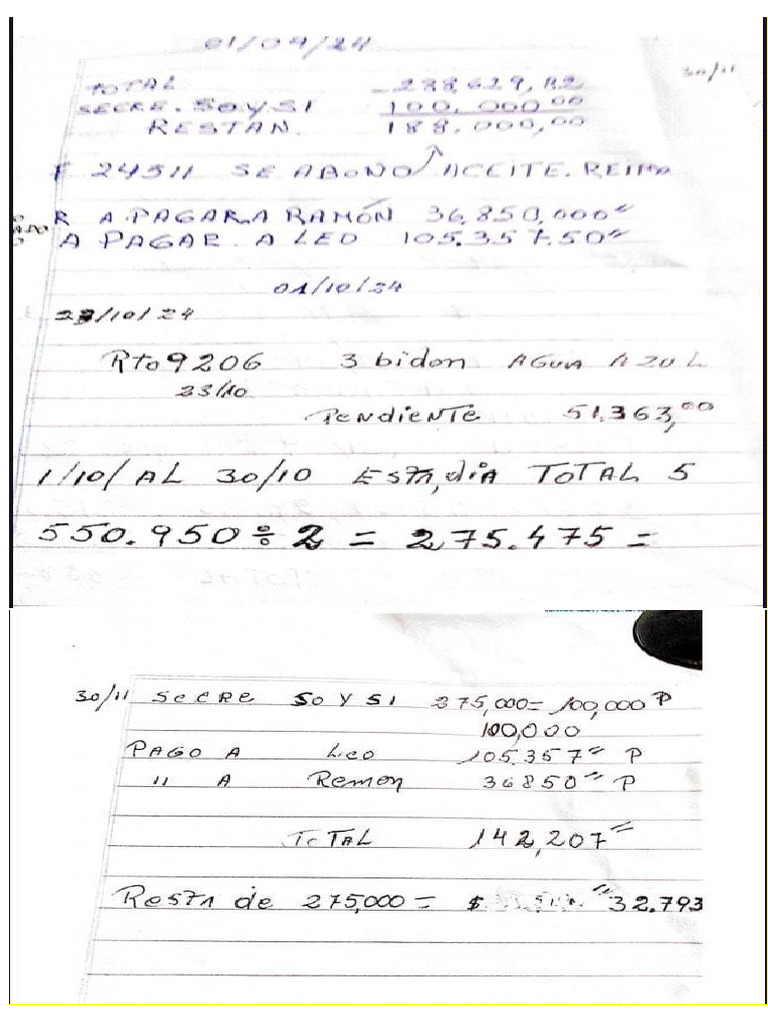 01/09/24
TOTAL 288.629,82
30/11
SECRE. SOYSI 100.000⁰⁰
RESTAN. 188.000,00
F 24511 SE ABONO ACEITE. REIMO
R A PAGAR.A RAMÓN 36,850,000=
A PAGAR. A LEO 105.357.50=
01/10/24
23/10/24
Rto 9206 3 bidon AGUA AZUL
23/10
Pendiente 51.363,⁰⁰
1/10/ AL 30/10 ESTADIA TOTAL 5
550.950 ÷ 2 = 275.475 =
30/11 SECRE SO Y SI 275,000= 100,000 P
100,000
PAGO A Leo 105.357= P
" A Remon 36850= P
TOTAL 142,207=
Resta de 275,000 = $ 32.793